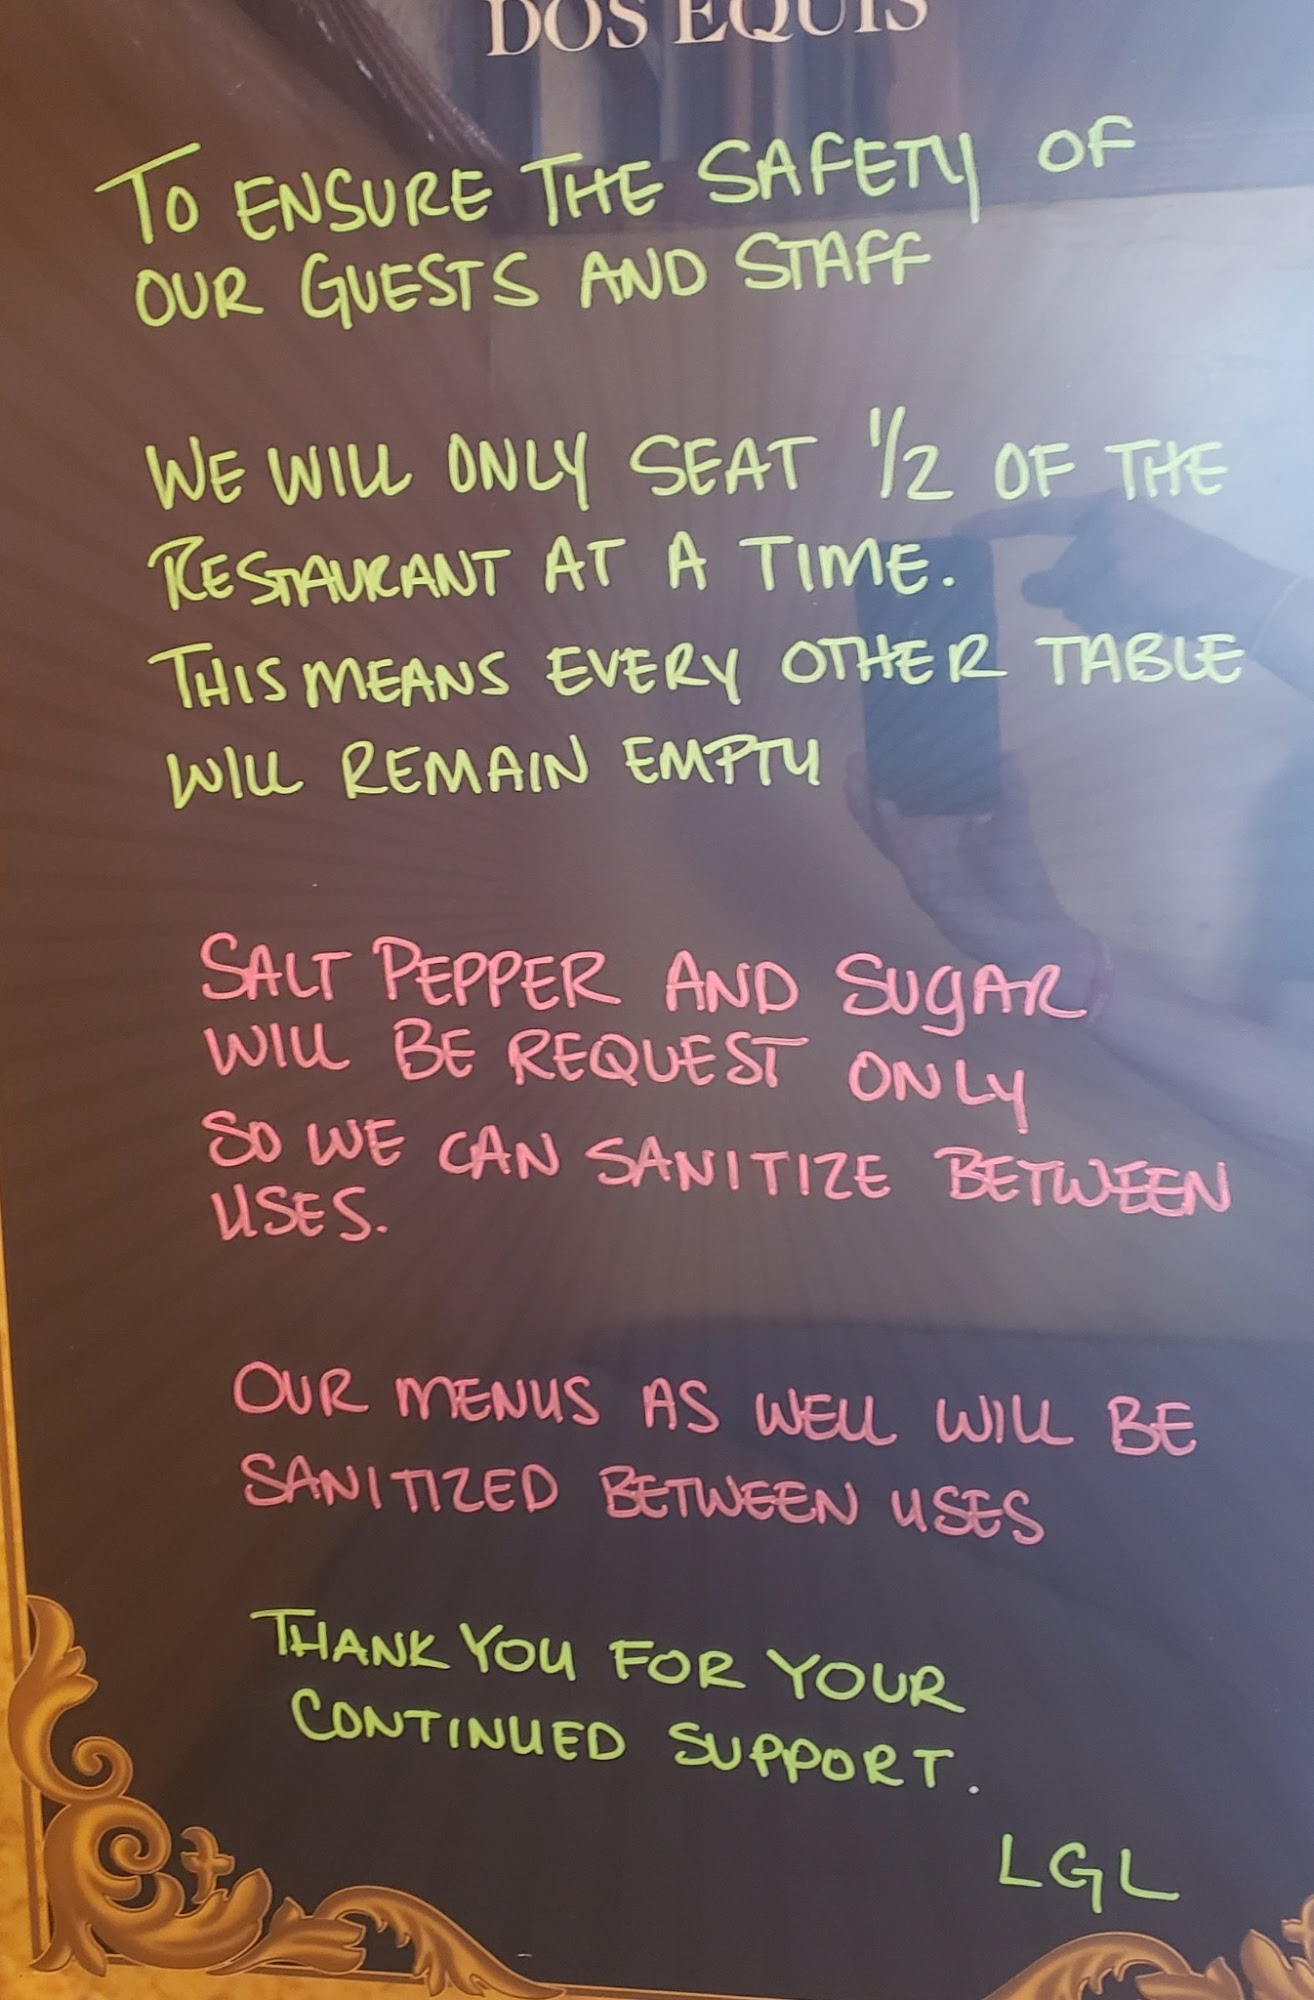 DOS EQUIS
TO ENSURE THE SAFETY OF
OUR GUESTS AND STAFF
WE WILL ONLY SEAT 1/2 OF THE
RESTAURANT AT A TIME.
THIS MEANS EVERY OTHER TABLE
WILL REMAIN EMPTY
SALT PEPPER AND SUGAR
WILL BE REQUEST ONLY
SO WE CAN SANITIZE BETWEEN
USES.
OUR MENUS AS WELL WILL BE
SANITIZED BETWEEN USES
THANK YOU FOR YOUR
CONTINUED SUPPORT.
LGL